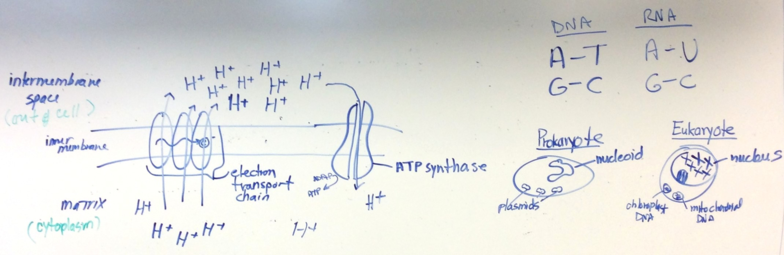 DNA
A-T
G-C
RNA
A-U
G-C
intermembrane
space
(out of cell)
H+ H+ H+
H+ H+ H+ H+ H+
H+ H+
inner
membrane
electron
transport
chain
ATP synthase
ATP
H+
matrix
(cytoplasm)
H+
H+ H+ H+
Prokaryote
nucleoid
plasmids
Eukaryote
nucleus
chloroplast
DNA
mitochondrial
DNA